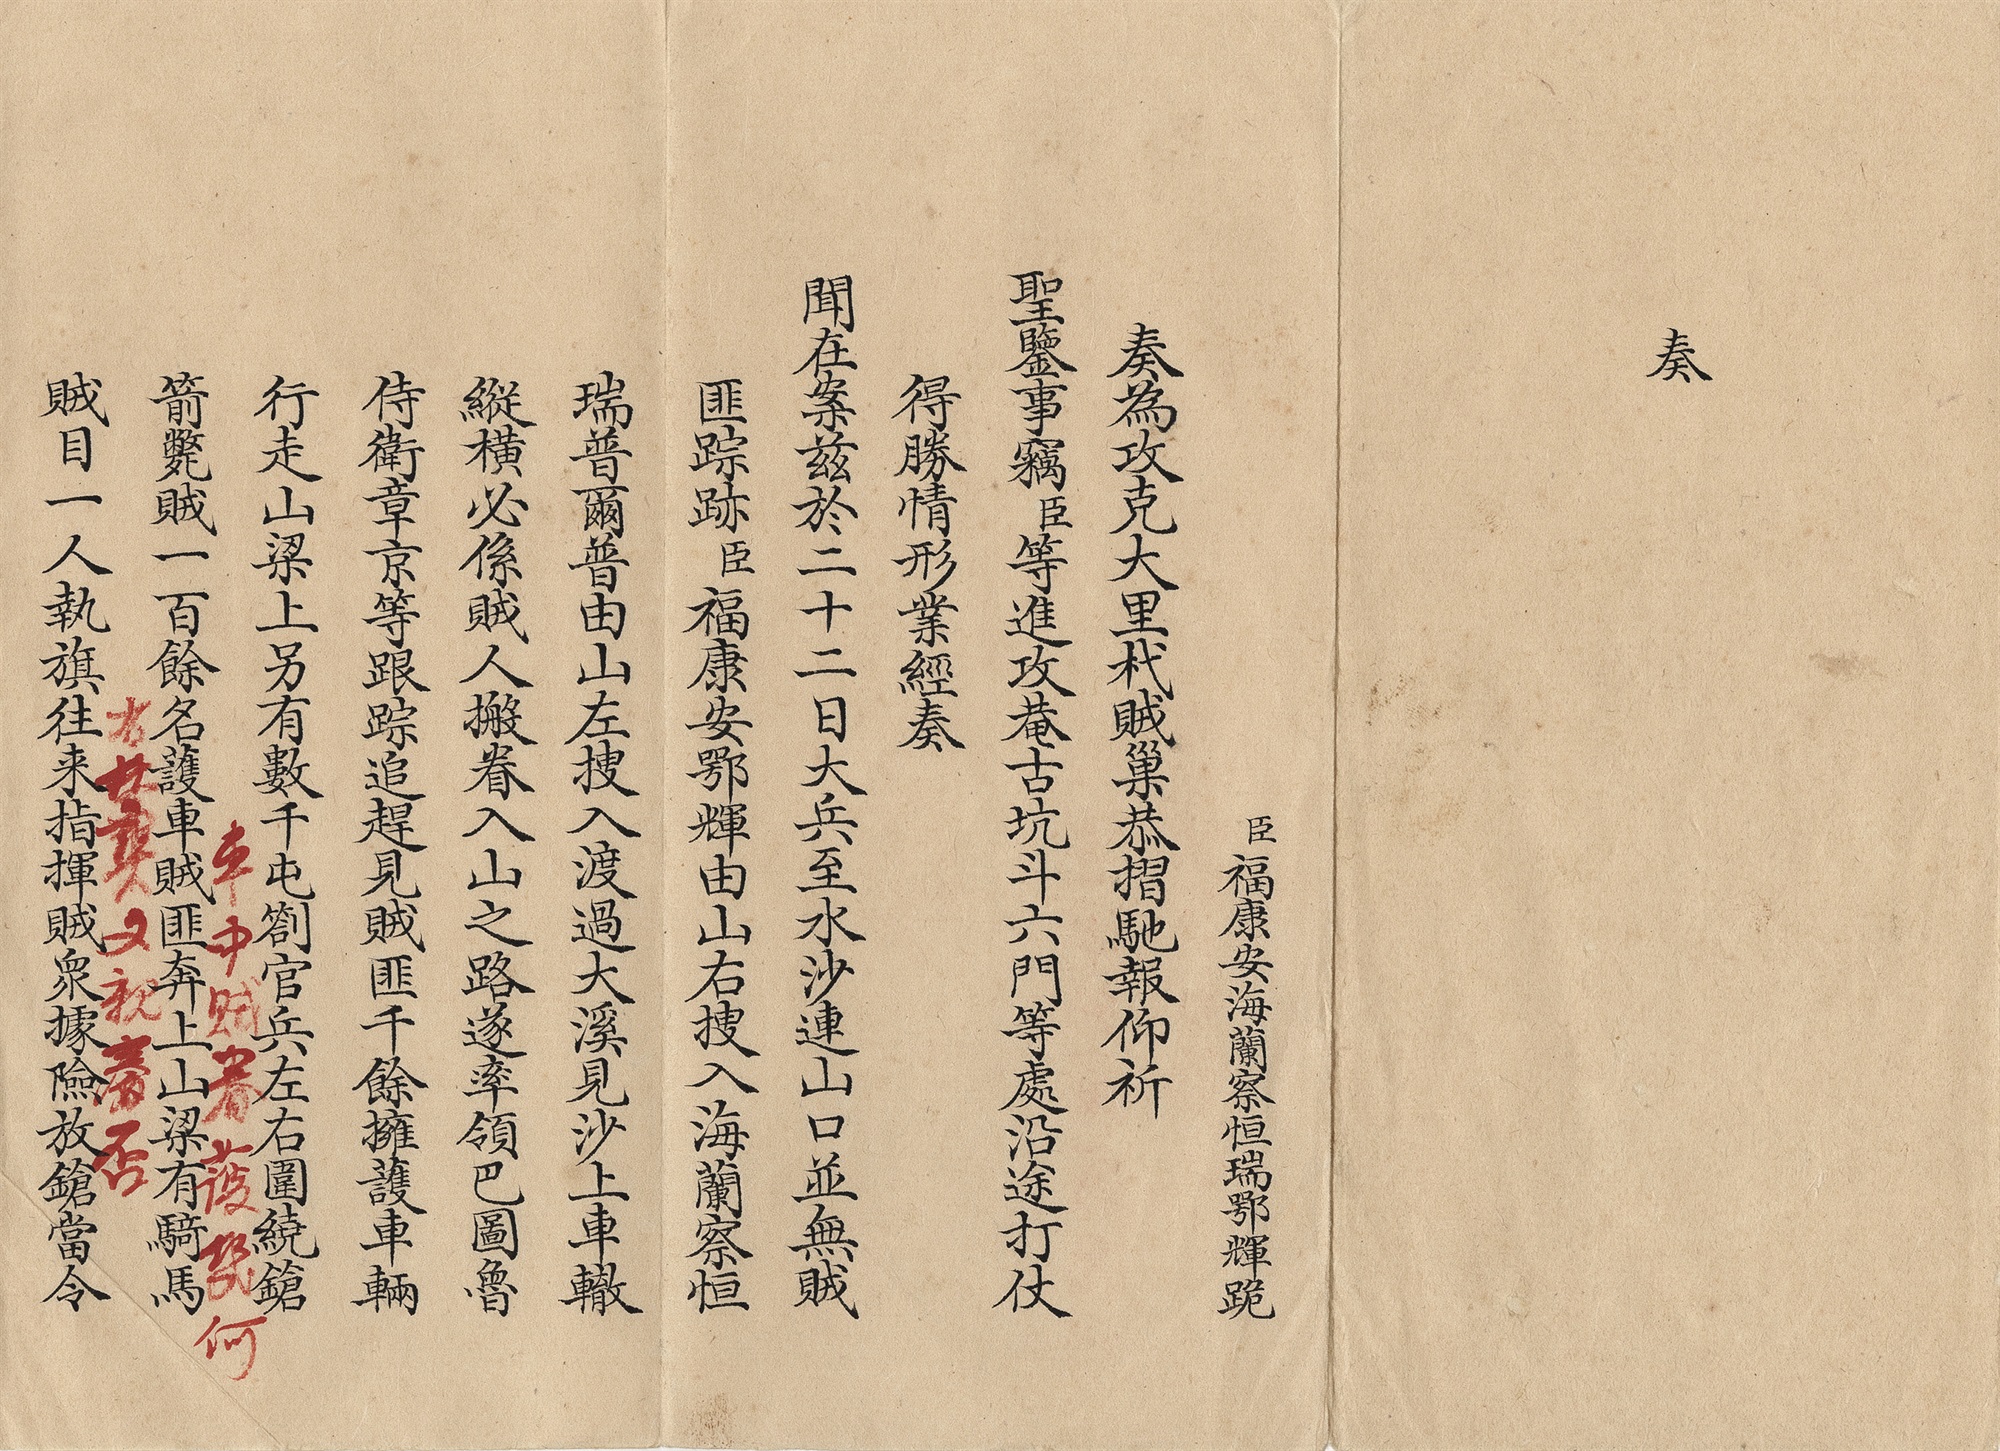 奏
臣福康安海蘭察恒瑞鄂輝跪
奏為攻克大里杙賊巢恭摺馳報仰祈
聖鑒事竊臣等進攻菴古坑斗六門等處沿途打仗
得勝情形業經奏
聞在案茲於二十二日大兵至水沙連山口並無賊
匪踪跡臣福康安鄂輝由山右搜入海蘭察恒
瑞普爾普由山左搜入渡過大溪見沙上車轍
縱橫必係賊人搬眷入山之路遂率領巴圖魯
侍衛章京等跟踪追趕見賊匪千餘擁護車輛
行走山梁上另有數千屯劄官兵左右圍繞鎗
車中賊眷
何
箭斃賊一百餘名護車賊匪奔上山梁有騎馬
又
否
賊目一人執旗往来指揮賊眾據險放鎗當令